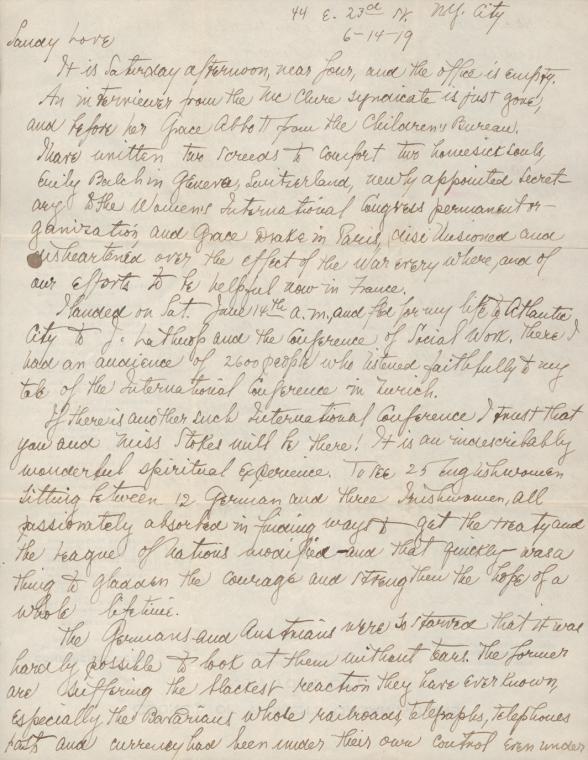 44 E. 23rd St. N.Y. City
6-14-19
Sandy Love
It is Saturday afternoon, near four, and the office is empty.
An interviewer from the McClure Syndicate is just gone,
and before her Grace Abbott from the Children's Bureau.
I have written two screeds to comfort two homesick souls,
Emily Balch in Geneva, Switzerland, newly appointed Secret-
ary to the Women's International Congress permanent or-
ganization and Grace Drake in Paris, disillusioned and
disheartened over the effect of the war every where, and of
our efforts to be helpful now in France.
I landed on Sat. June 14th a.m., and fled for my life to Atlantic
City to J. Lathrop and the Conference of Social Work. There I
had an audience of 2600 people who listened faithfully to my
tale of the International Conference in Zurich.
If there is another such International Conference I trust that
you and Miss Stokes will be there! It is an indescribably
wonderful spiritual experience. To see 25 Englishwomen
sitting between 12 German and three Irishwomen, all
passionately absorbed in finding ways to get the treaty and
the League of Nations modified - and that quickly - was a
thing to gladden the courage and strengthen the hope of a
whole lifetime.
The Germans and Austrians were so starved that it was
hardly possible to look at them without tears. The former
are suffering the blackest reaction they have ever known,
especially, the Bavarians whose railroads, telegraphs, telephones
and currency had been under their own control even under